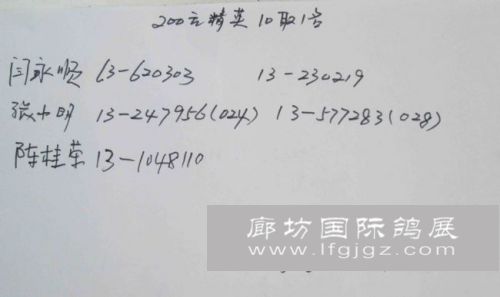 200元精英10取1名
闫永顺 13-620303 13-230219
张小明 13-247956(024) 13-577283(028)
陈桂荣 13-1048110
廊坊国际鸽展
www.lfgjgz.com